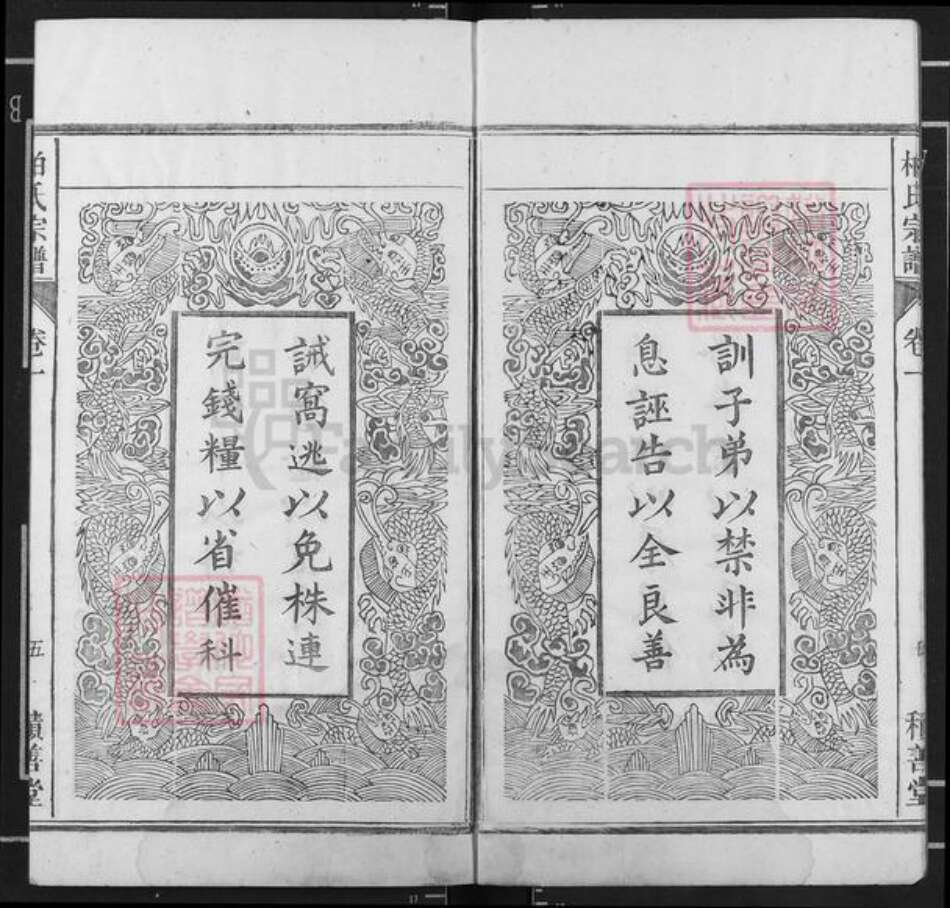 訓子弟以禁非為
息誣告以全良善
誡窩逃以免株連
完錢糧以省催科
柏氏宗譜
卷一
積善堂
柏氏宗譜
卷一
五
積善堂
FamilySearch